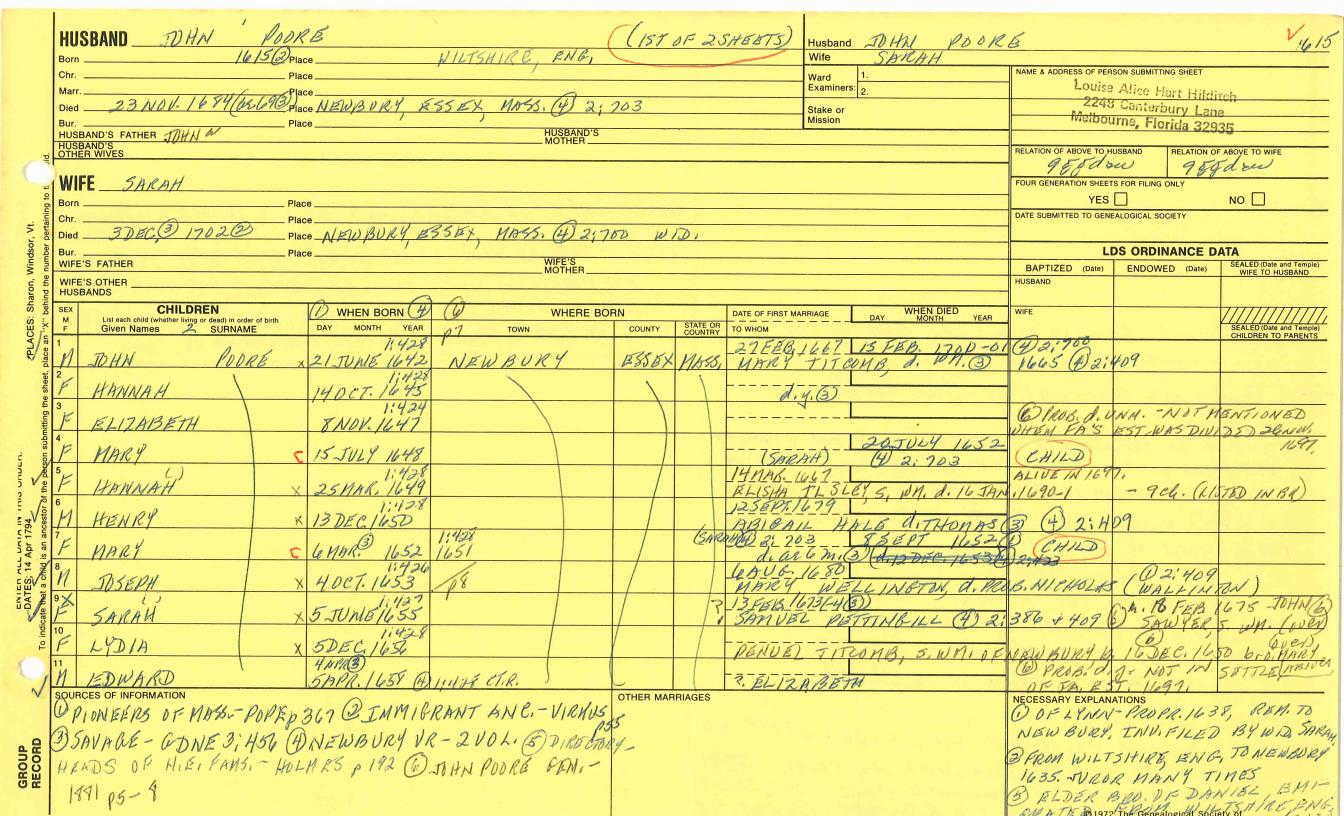 HUSBAND JOHN POORE (1ST OF 2 SHEETS)
Born 1615 ② Place WILTSHIRE, ENG.
Chr. Place
Marr. Place
Died 23 NOV. 1684 Place NEWBURY, ESSEX, MASS. ④ 2:703
Bur. Place
HUSBAND'S FATHER JOHN HUSBAND'S MOTHER
HUSBAND'S OTHER WIVES
Husband JOHN POORE 1615
Wife SARAH
Ward Examiners: 1.
2.
Stake or Mission
NAME & ADDRESS OF PERSON SUBMITTING SHEET
Louise Alice Hart Hilditch
2248 Canterbury Lane
Melbourne, Florida 32935
RELATION OF ABOVE TO HUSBAND RELATION OF ABOVE TO WIFE
FOUR GENERATION SHEETS FOR FILING ONLY
YES NO
DATE SUBMITTED TO GENEALOGICAL SOCIETY
WIFE SARAH
Born Place
Chr. Place
Died 3 DEC. ③ 1702 ② Place NEWBURY, ESSEX, MASS. ④ 2:700 WID.
Bur. Place
WIFE'S FATHER WIFE'S MOTHER
WIFE'S OTHER HUSBANDS
LDS ORDINANCE DATA
BAPTIZED (Date) ENDOWED (Date) SEALED (Date and Temple) WIFE TO HUSBAND
HUSBAND
WIFE
SEALED (Date and Temple) CHILDREN TO PARENTS
SEX M F
CHILDREN
List each child (whether living or dead) in order of birth
Given Names 2 SURNAME
① WHEN BORN ④
DAY MONTH YEAR
⑥ p7 WHERE BORN
TOWN COUNTY STATE OR COUNTRY
DATE OF FIRST MARRIAGE
TO WHOM
WHEN DIED
DAY MONTH YEAR
1 1:428 27 FEB. 1667 13 FEB. 1700-01 ④ 2:700
M JOHN POORE x 21 JUNE 1642 NEWBURY ESSEX MASS. MARY TITCOMB, d. WM. ③ 1665 ④ 2:409
2 1:428
F HANNAH 14 OCT. 1645 d.y. ③
3 1:424 ⑥ PROB. d. UNM. - NOT MENTIONED
F ELIZABETH 8 NOV. 1647 WHEN FA'S EST. WAS DIVIDED 1697.
4 20 JULY 1652
F MARY C 15 JULY 1648 (SARAH) ④ 2:703 CHILD
5 1:428 14 MAR. 1667 ALIVE IN 1697.
F HANNAH x 25 MAR. 1649 ELISHA ILSLEY, S. WM. d. 16 JAN. 1690-1 - 9 ch. (LISTED IN BR)
6 1:428 12 SEPT. 1679
M HENRY x 13 DEC. 1650 ABIGAIL HALE d. THOMAS ③ ④ 2:409
7 1:428 (SARAH) 2:703 8 SEPT 1652
F MARY C 6 MAR. ③ 1652 1651 d. at 6 m. ③ d. 12 DEC. 1653 2:423 CHILD
8 1:426 6 AUG. 1680 2:409
M JOSEPH x 4 OCT. 1653 p8 MARY WELLINGTON, d. PROB. NICHOLAS (WALLINTON)
9 1:427 ? 13 FEB. 1673/4 ③ 18 FEB 1675 JOHN ⑥
F SARAH x 5 JUNE 1655 SAMUEL PETTINGILL ④ 2:386 + 409 SAWYER, S. WM. (OVER)
10 1:428
F LYDIA x 5 DEC. 1656 PENUEL TITCOMB, S. WM. OF NEWBURY b. 16 DEC. 1650 bro. MARY ABOVE
11 4 APR. ③ ⑥ PROB. d.y. NOT IN SETTLE
M EDWARD 5 APR. 1658 ④ 1:428 CT.R. ? ELIZABETH OF FA. EST. 1697.
SOURCES OF INFORMATION
① PIONEERS OF MASS. - POPE p 367 ② IMMIGRANT ANC. - VIRKUS p55
③ SAVAGE - GDNE 3:456 ④ NEWBURY VR - 2 VOL. ⑤ DIRECTORY -
HEADS OF N.E. FAMS. - HOLMES p 192 ⑥ JOHN POORE GEN. -
1881 p5-8
OTHER MARRIAGES
NECESSARY EXPLANATIONS
① OF LYNN - PROPR. 1638, REM. TO
NEWBURY. INV. FILED BY WID. SARAH.
② FROM WILTSHIRE, ENG. TO NEWBURY
1635. JUROR MANY TIMES
③ ELDER BRO. OF DANIEL, EMI-
GRATED FROM WILTSHIRE, ENG.
©1972 The Genealogical Society of
ENTER ALL DATA IN THIS ORDER:
DATES: 14 Apr 1794
PLACES: Sharon, Windsor, Vt.
GROUP RECORD